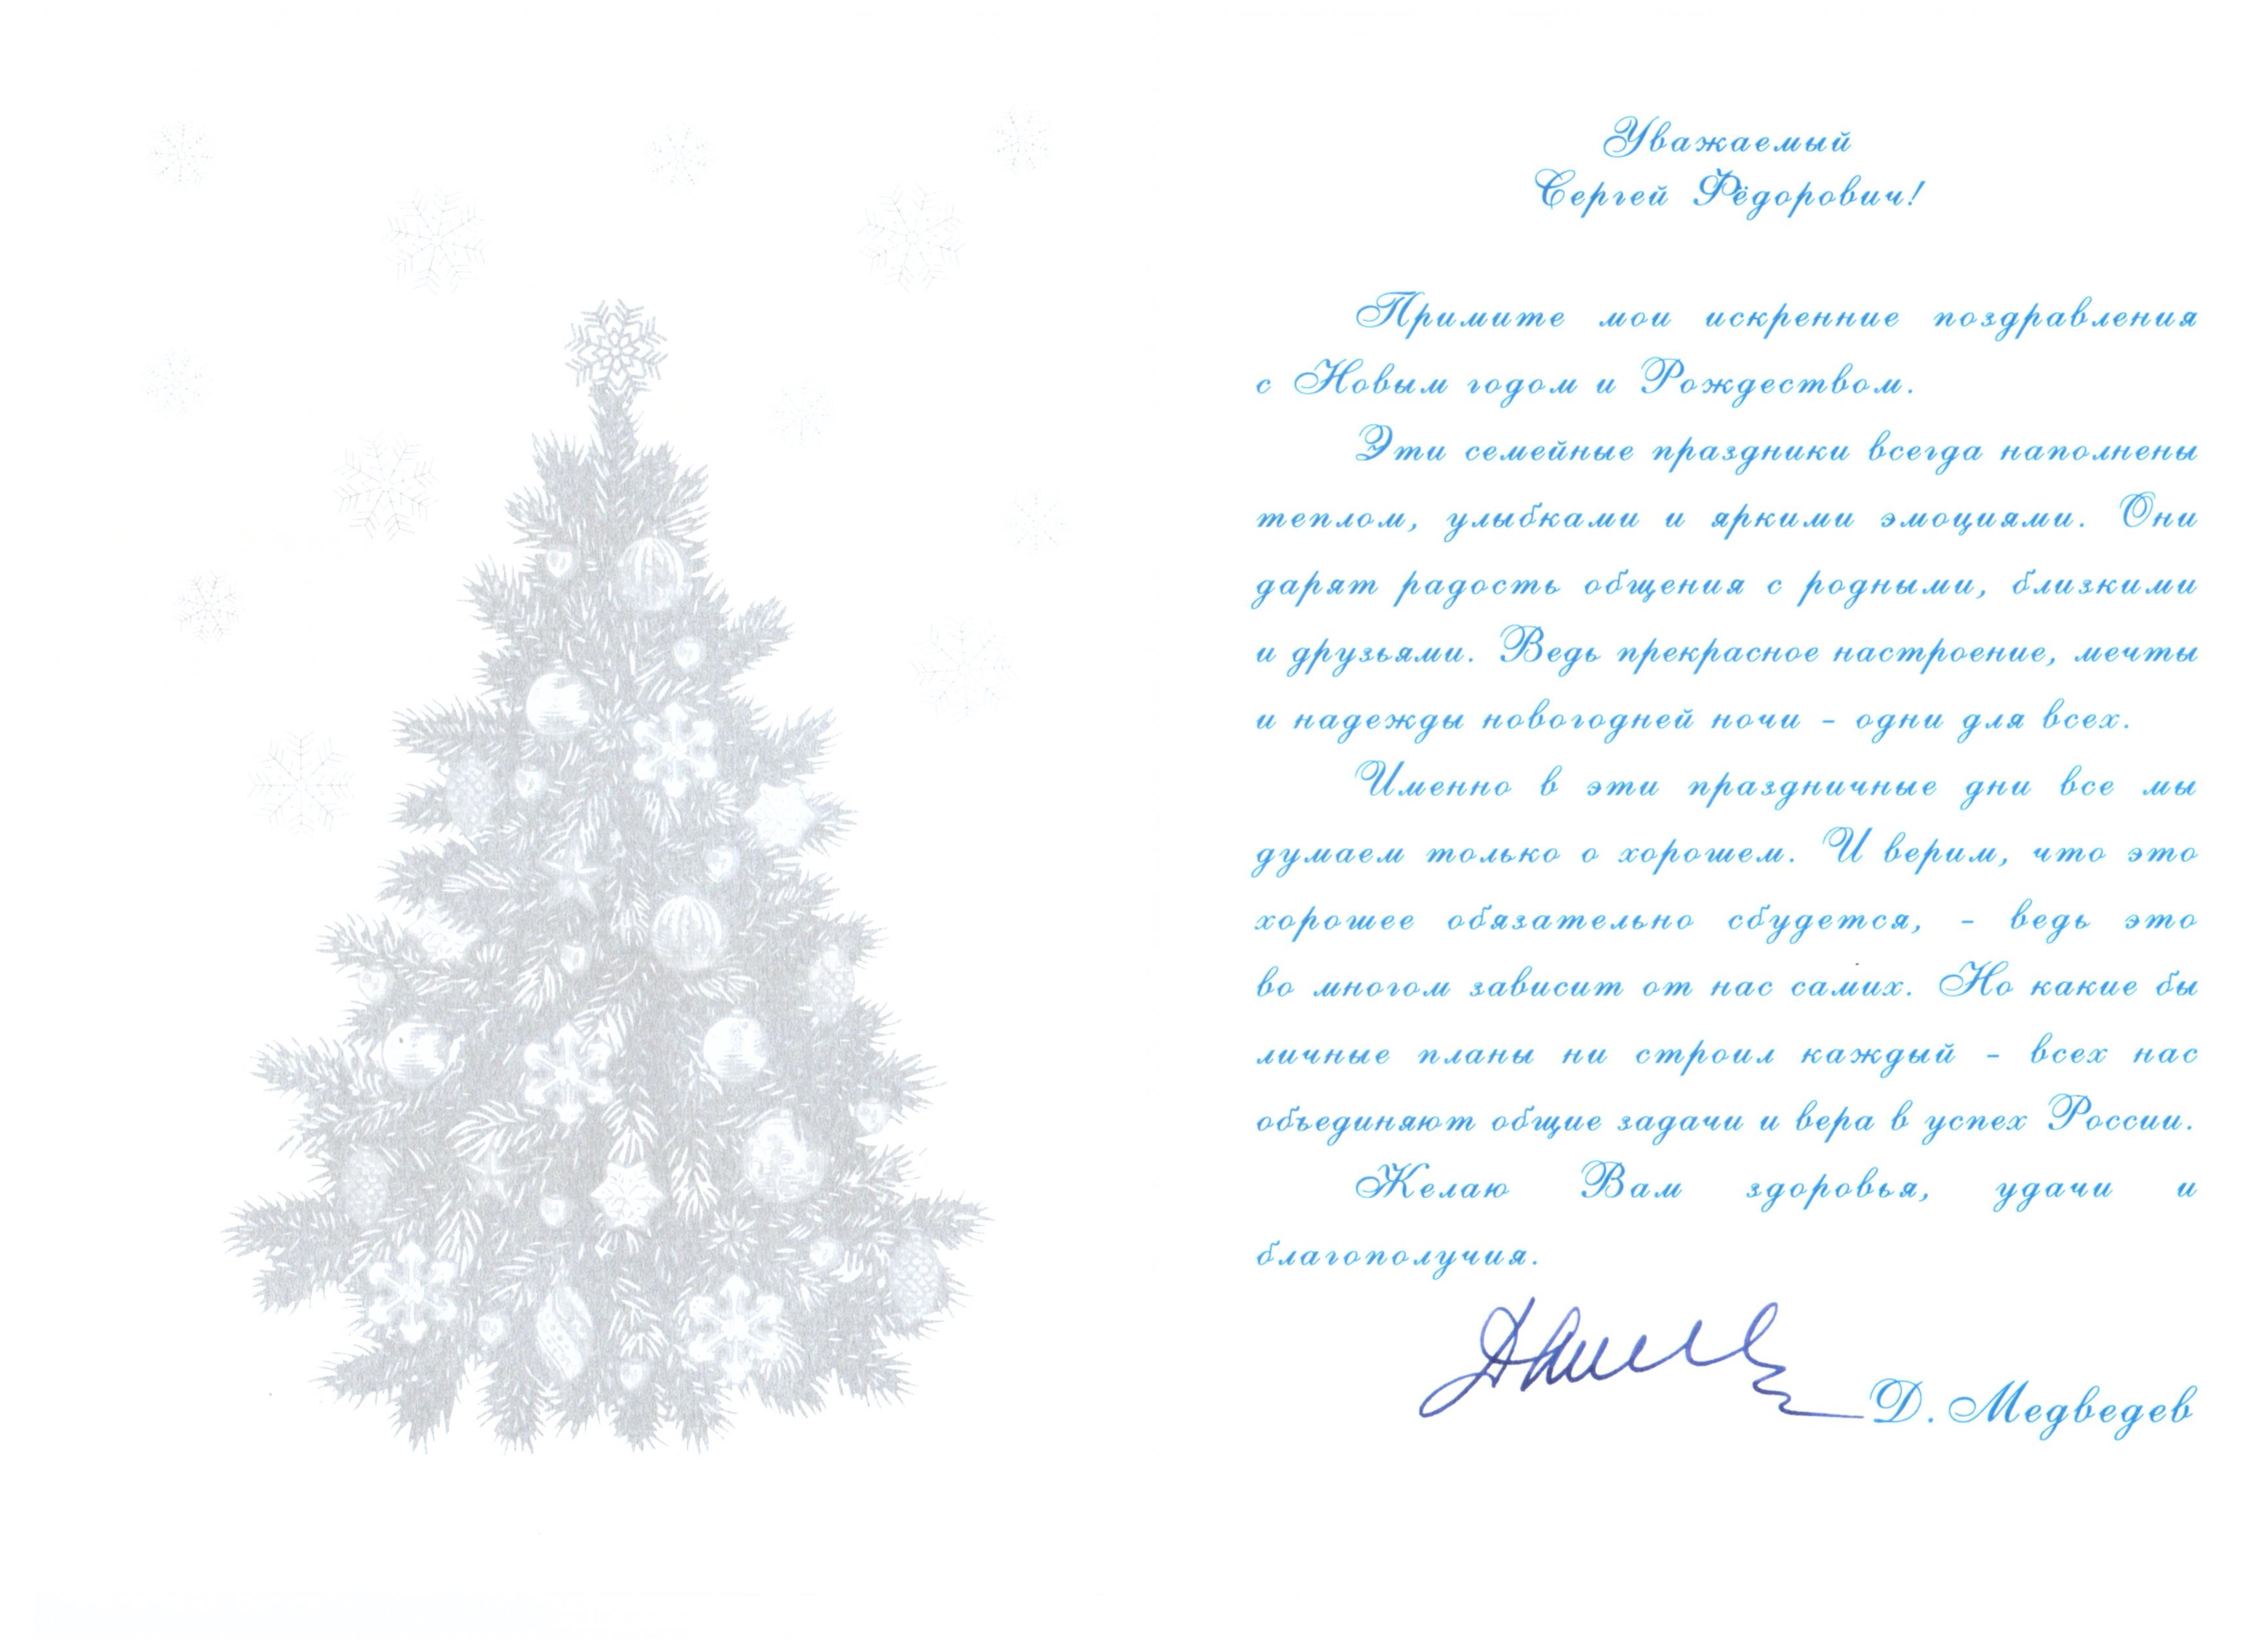 Уважаемый
Сергей Фёдорович!
Примите мои искренние поздравления
с Новым годом и Рождеством.
Эти семейные праздники всегда наполнены
теплом, улыбками и яркими эмоциями. Они
дарят радость общения с родными, близкими
и друзьями. Ведь прекрасное настроение, мечты
и надежды новогодней ночи - одни для всех.
Именно в эти праздничные дни все мы
думаем только о хорошем. И верим, что это
хорошее обязательно сбудется, - ведь это
во многом зависит от нас самих. Но какие бы
личные планы ни строил каждый - всех нас
объединяют общие задачи и вера в успех России.
Желаю Вам здоровья, удачи и
благополучия.
Д. Медведев